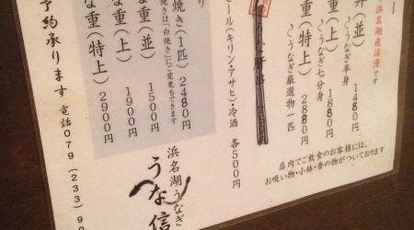 浜名湖産浪漫です
丼(並)1480円
くうなぎ半身
丼(上)1880円
くうなぎ七分身
(特上)2880円
くうなぎ厳選物一匹
ビール(キリン・アサヒ)・冷酒 各500円
り
焼き(1匹)2480円
焼きは、白焼きにもご変更もできます
な重(並)1500円
な重(上)1900円
な重(特上)2900円
予約承ります 電話079(233)90
店内でご飲食のお客様には、
お吸い物・小鉢・香の物がついております
浜名湖うなぎ
うな信